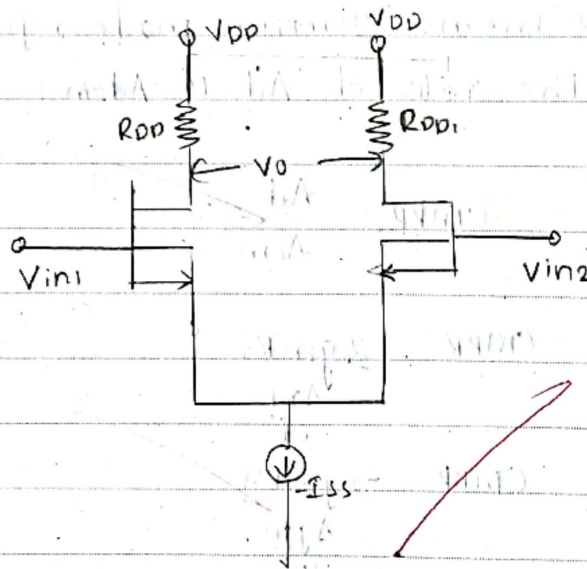 VDD VDD
RDD RDD1
VO
Vin1 Vin2
ISS